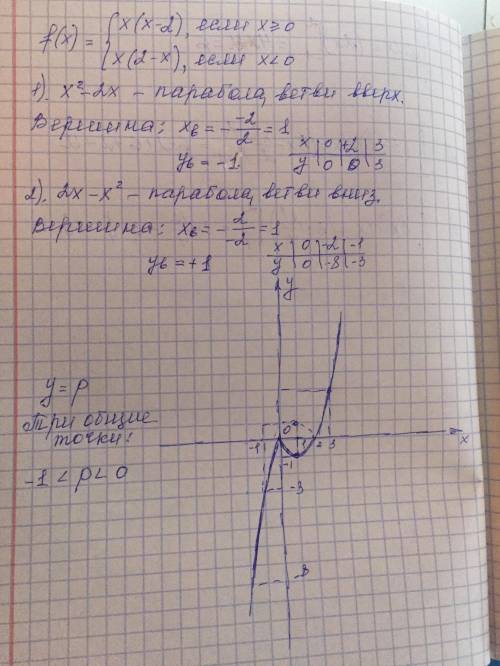 f(x) = { x(x-2), если x≥0
x(2-x), если x<0
1). x²-2x - парабола, ветви вверх.
Вершина: xв = - -2/2 = 1
yв = -1
x | 0 | +2 | 3
y | 0 | 0 | 3
2). 2x-x² - парабола, ветви вниз.
Вершина: xв = - 2/-2 = 1
yв = +1
x | 0 | -2 | -1
y | 0 | -8 | -3
y
y = p
Три общие
точки:
-1 < p < 0
0
-1 1 2 3 x
-1
-3
-8